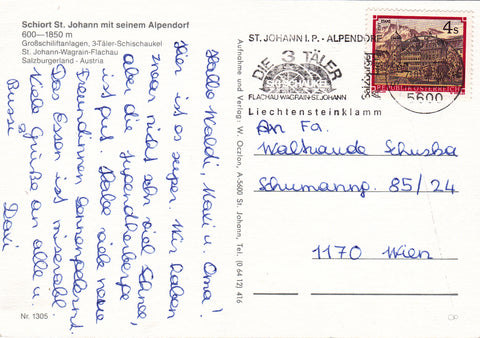 Schiort St. Johann mit seinem Alpendorf
600—1850 m
Großschiliftanlagen, 3-Täler-Schischaukel
St. Johann-Wagrain-Flachau
Salzburgerland - Austria
Hallo Waldi, Maxi u. Oma!
Hier ist es super. Wir haben
zwar nicht sehr viel Schnee,
aber die Jugendherberge
ist gut. Habe viele neue
Freundinnen kennengelernt.
Das Essen ist miserabel
Viele Grüße an alle u.
Bussi
Dani
Nr. 1305
Aufnahme und Verlag: W. Oczlon, A-5600 St. Johann, Tel. (0 64 12) 416
ST. JOHANN I. P. - ALPENDORF
DIE 3 TÄLER
FLACHAU WAGRAIN ST. JOHANN
5600
4 S
REPUBLIK ÖSTERREICH
Liechtensteinklamm
An Fa.
Waltraude Schuska
Schumanng. 85/24
1170 Wien